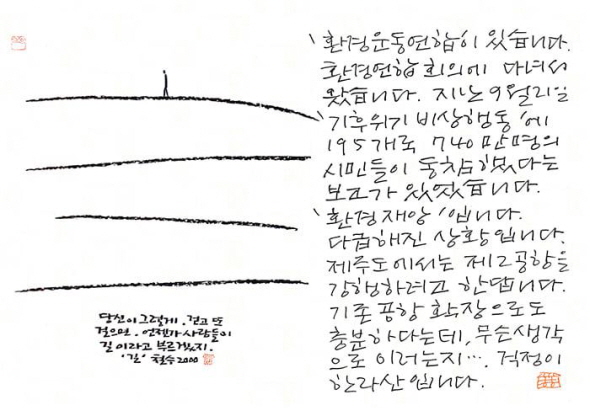 '환경운동연합'이 있습니다.
환경연합 회의에 다녀서
왔습니다. 지난 9월21일
'기후위기 비상행동'에
195개국 740만명의
시민들이 동참했다는
보고가 있었습니다.
'환경재앙'입니다.
다급해진 상황입니다.
제주도에서는 제2공항을
강행하려고 한답니다.
기존 공항 확장으로도
충분하다는데, 무슨생각
으로 이러는지···. 걱정이
한라산입니다.
당신이 그렇게, 걷고 또
걸으면, 언젠가 사람들이
길이라고 부르겠지.
'길' 철수 2000